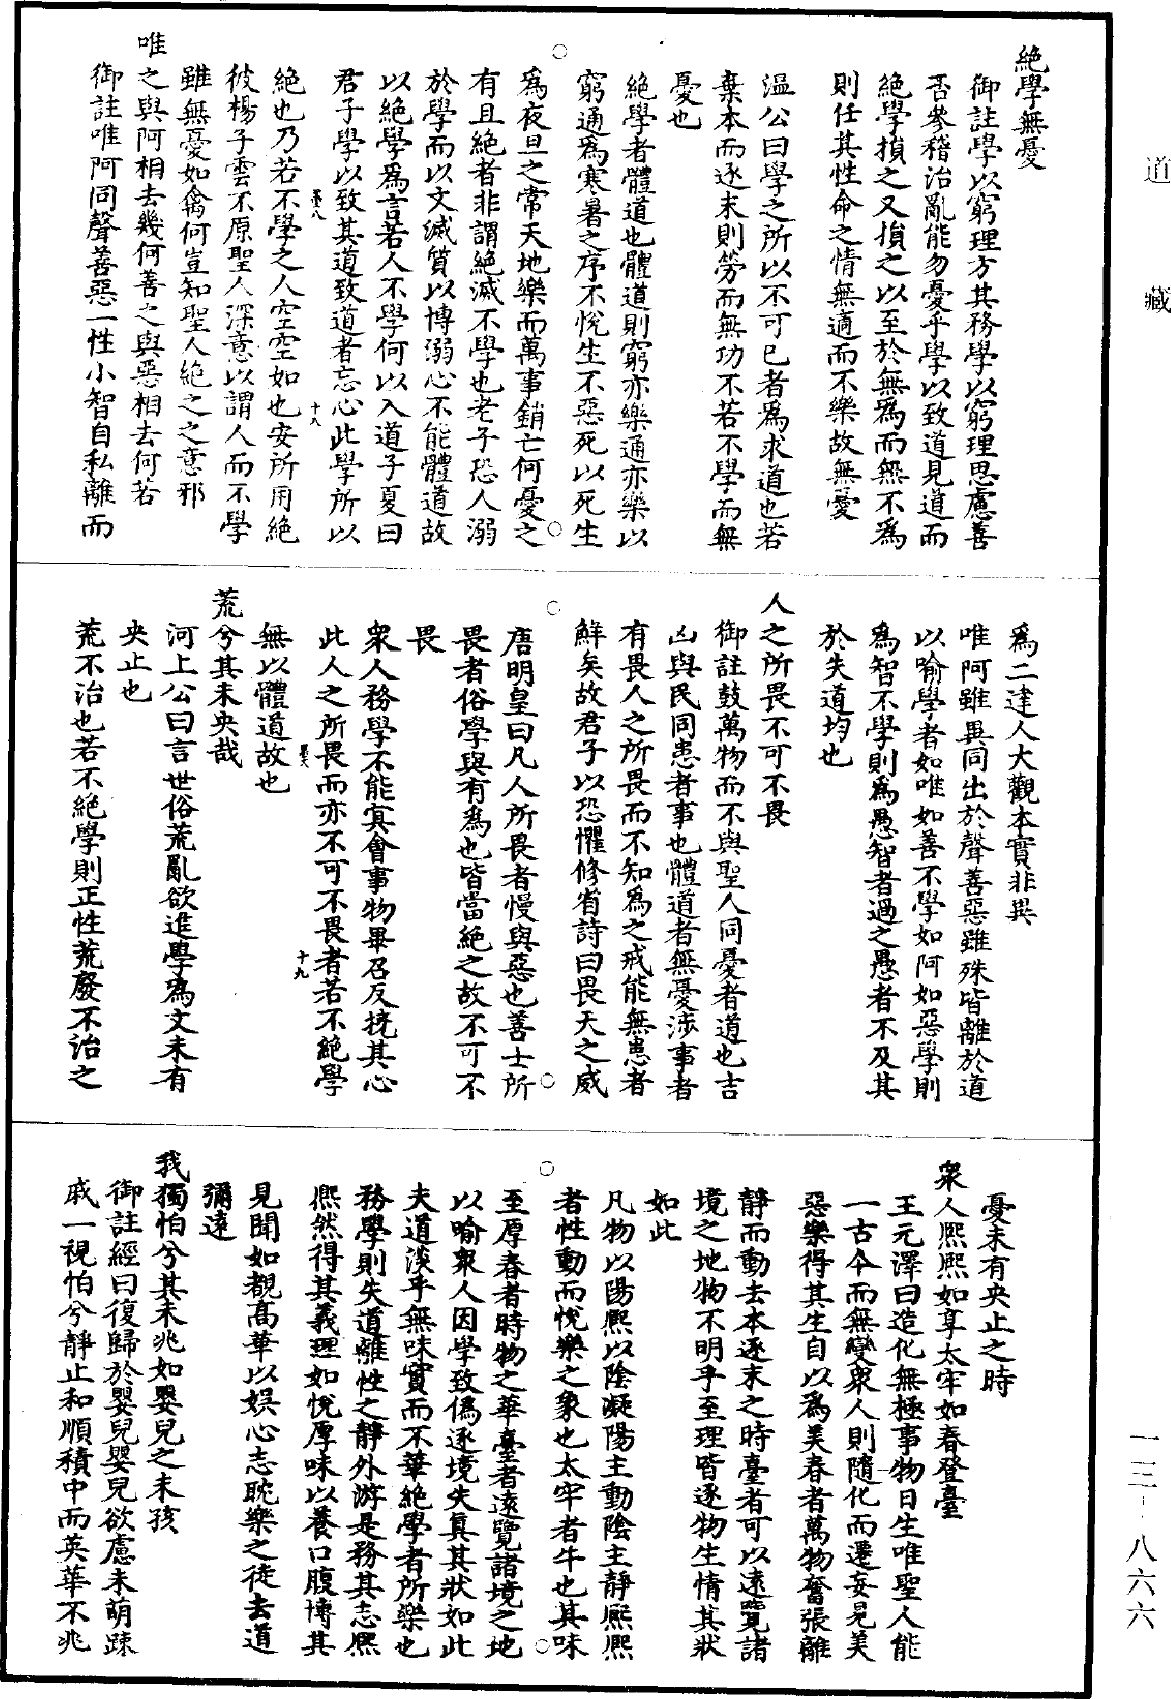 道藏
絕學無憂
御註學以窮理方其務學以窮理思慮善
否參稽治亂能勿憂乎學以致道見道而
絕學損之又損之以至於無爲而無不爲
則任其性命之情無適而不樂故無憂
溫公曰學之所以不可已者爲求道也若
棄本而逐末則勞而無功不若不學而無
憂也
絕學者體道也體道則窮亦樂通亦樂以
窮通爲寒暑之序不悅生不惡死以死生
爲夜旦之常天地樂而萬事銷亡何憂之
有且絕者非謂絕滅不學也老子恐人溺
於學而以文滅質以博溺心不能體道故
以絕學爲言若人不學何以入道子夏曰
君子學以致其道致道者忘心此學所以
十八
絕也乃若不學之人空空如也安所用絕
彼楊子雲不原聖人深意以謂人而不學
雖無憂如禽何豈知聖人絕之之意邪
唯之與阿相去幾何善之與惡相去何若
御註唯阿同聲善惡一性小智自私離而
爲二達人大觀本實非異
唯阿雖異同出於聲善惡雖殊皆離於道
以喻學者如唯如善不學如阿如惡學則
爲智不學則爲愚智者過之愚者不及其
於失道均也
人之所畏不可不畏
御註鼓萬物而不與聖人同憂者道也吉
凶與民同患者事也體道者無憂涉事者
有畏人之所畏而不知爲之戒能無患者
鮮矣故君子以恐懼修省詩曰畏天之威
唐明皇曰凡人所畏者慢與惡也善士所
畏者俗學與有爲也皆當絕之故不可不
畏
衆人務學不能冥會事物畢召反撓其心
此人之所畏而亦不可不畏者若不絕學
十九
無以體道故也
荒兮其未央哉
河上公曰言世俗荒亂欲進學爲文未有
央止也
荒不治也若不絕學則正性荒廢不治之
憂未有央止之時
衆人熙熙如享太牢如春登臺
王元澤曰造化無極事物日生唯聖人能
一古今而無變衆人則隨化而遷妄見美
惡樂得其生自以爲美春者萬物奮張離
靜而動去本逐末之時臺者可以遠覽諸
境之地物不明乎至理皆逐物生情其狀
如此
凡物以陽熙以陰凝陽主動陰主靜熙熙
者性動而悅樂之象也太牢者牛也其味
至厚春者時物之華臺者遠覽諸境之地
以喻衆人因學致僞逐境失真其狀如此
夫道淡乎無味實而不華絕學者所樂也
務學則失道離性之靜外游是務其志熙
熙然得其義理如悅厚味以養口腹博其
見聞如覩高華以娛心志耽樂之徒去道
彌遠
我獨怕兮其未兆如嬰兒之未孩
御註經曰復歸於嬰兒嬰兒欲慮未萌踈
戚一視怕兮靜止和順積中而英華不兆
一三—八六六